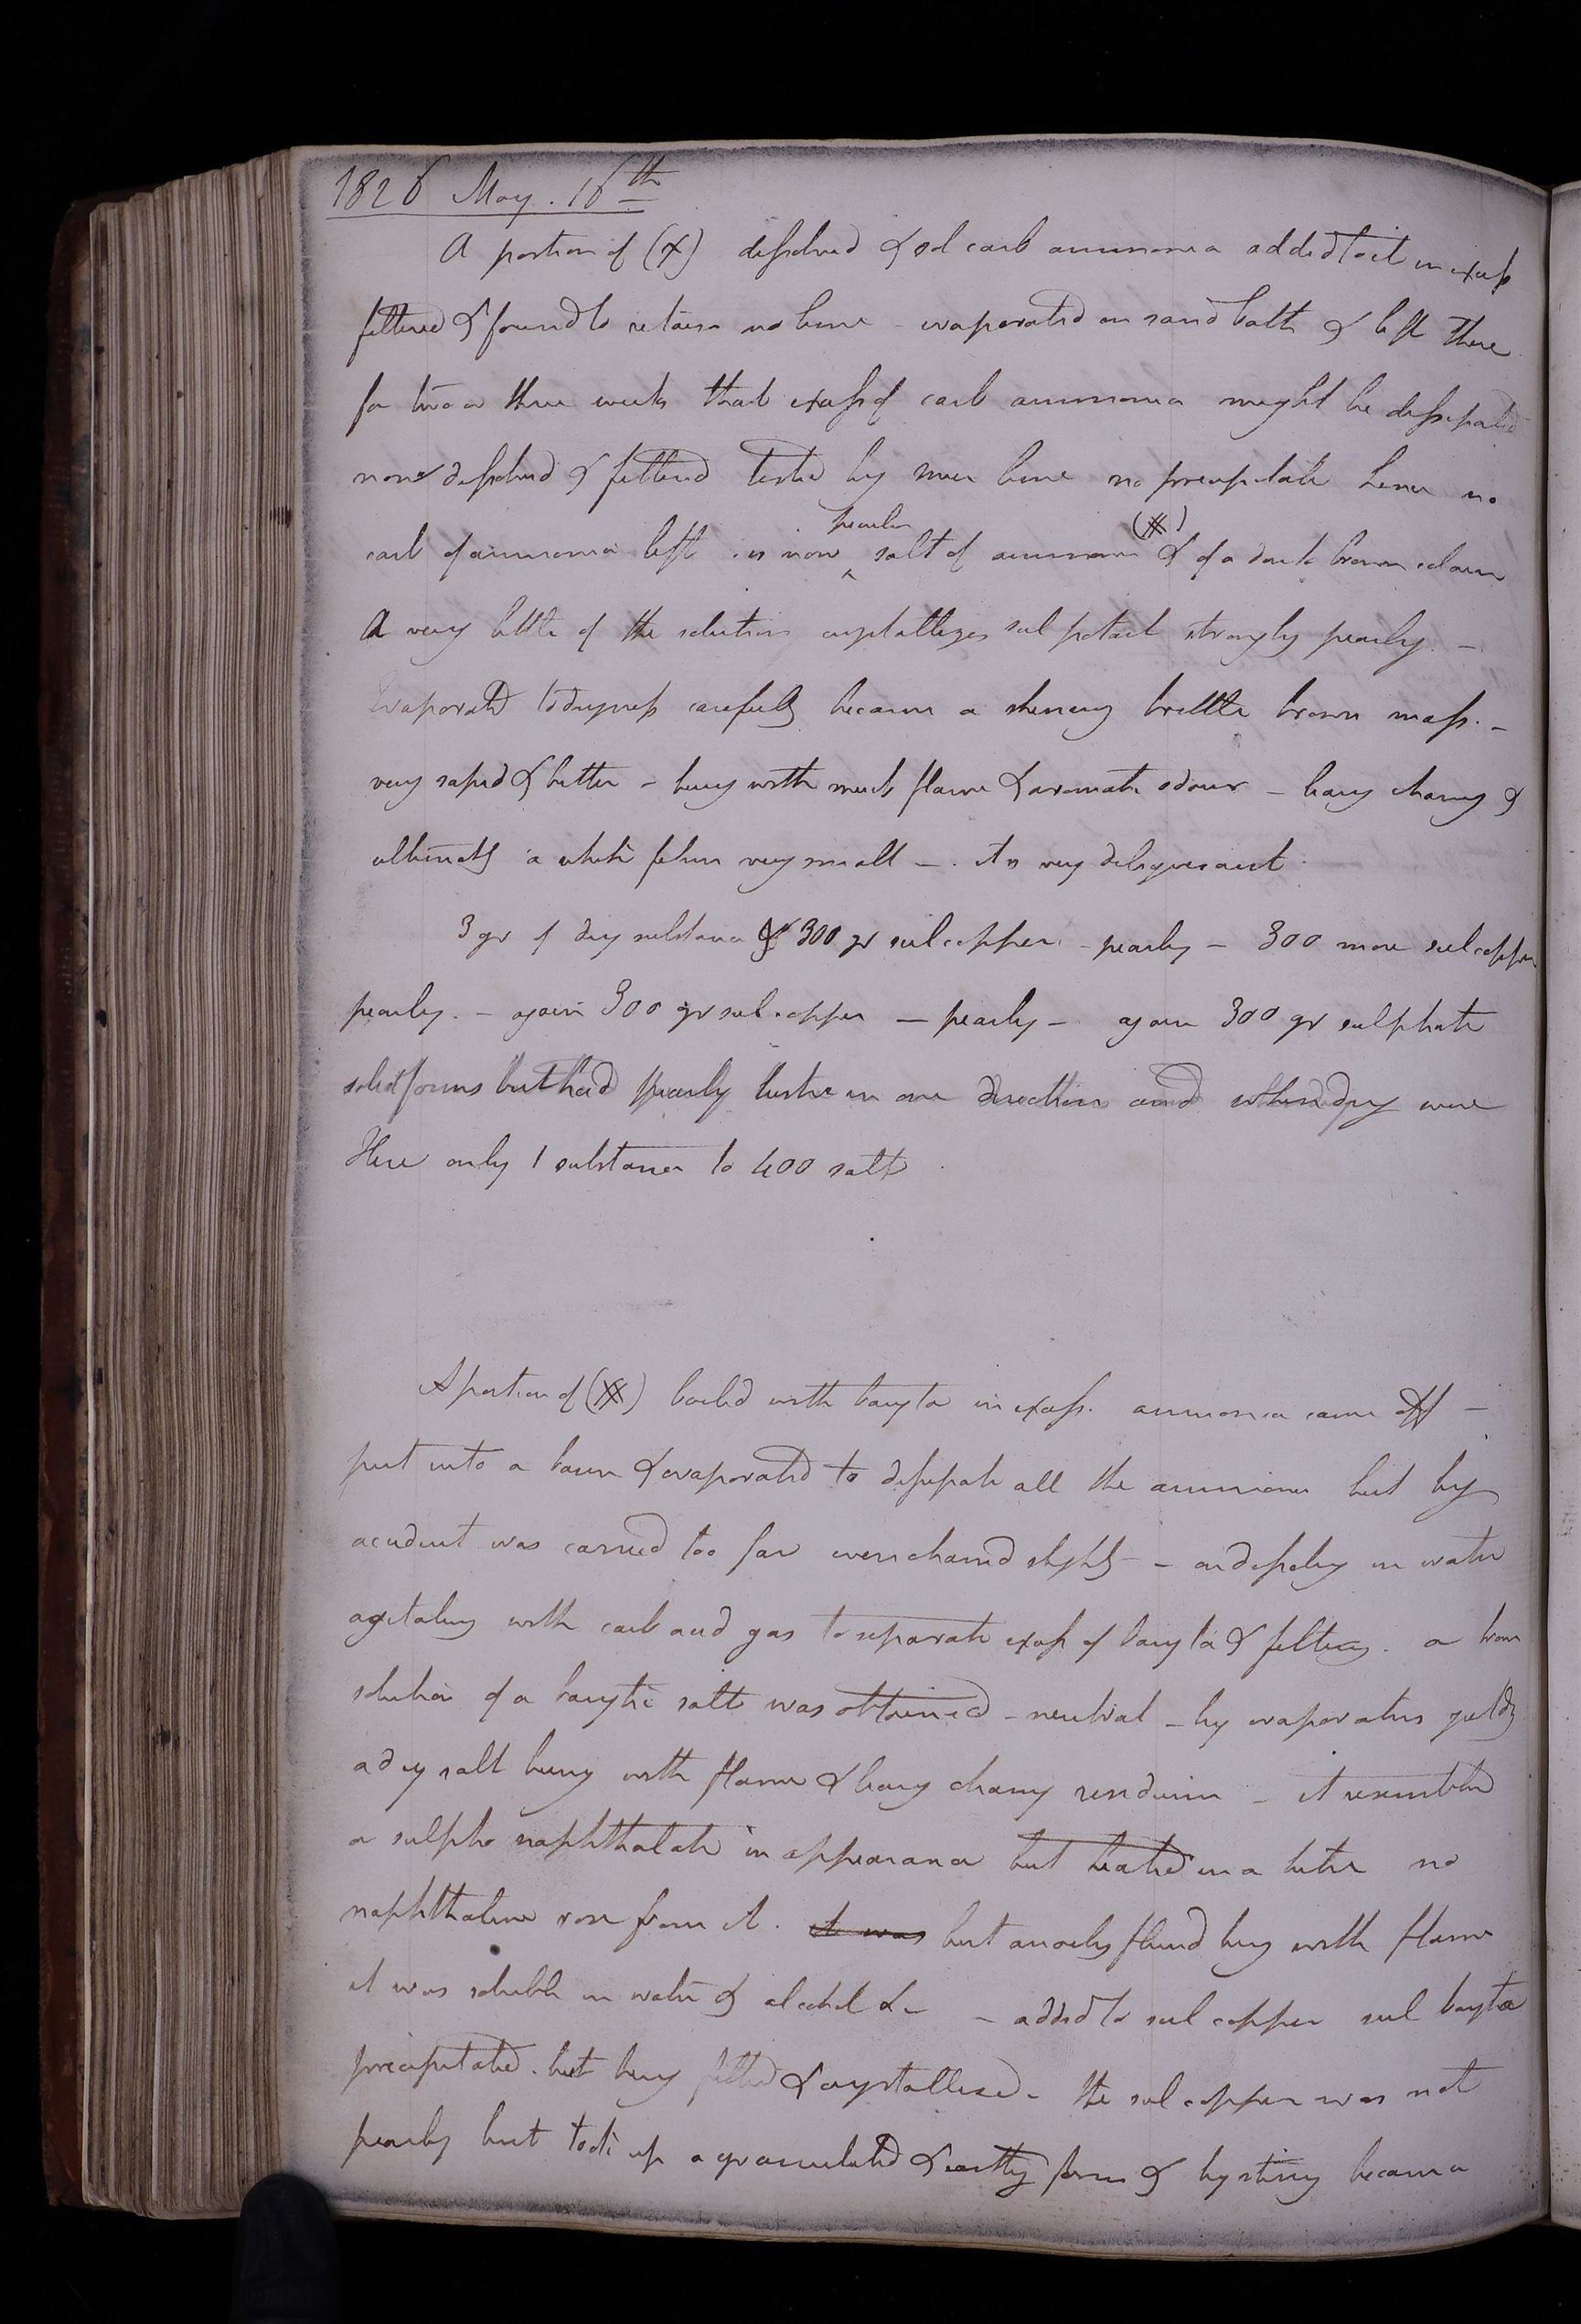 1826 May. 16th
A portion of (X) dissolved & sol carb ammonia added to it in excess
filtered & found to retain no lime - evaporated on sand bath & left there
for two or three weeks that excess of carb ammonia might be dissipated
now dissolved & filtered tested by mur lime no precipitate hence no
carb of ammonia left is now peculiar salt of ammonia (XX) & of a dark brown colour
A very little of the solution crystallizes sul potash strongly pearly. -
Evaporated to dryness carefully became a shining brittle brown mass. -
very sapid & bitter - burng with much flame & aromatic odour - leavg charring &
ultimately a white film very small -. it is very deliquescent
3 gr of dry substance & 300 gr sul copper - pearly - 300 more sul copper
pearly. - again 300 gr sul copper - pearly - again 300 gr sulphate
solid forms but had pearly lustre in one direction and when dry were
Here only 1 substance to 400 salt
A portion of (XX) boiled with baryta in excess. ammonia came off -
put into a basin & evaporated to dissipate all the ammonia but by
accident was carried too far even charred slightly - on dissolvg in water
agitating with carb acid gas to separate excess of baryta & filterg. a brown
solution of a barytic salt was obtained - neutral - by evaporation yieldg
a dry salt burng with flame & leavg charry residuum - it resembled
a sulpho naphthalate in appearance but heated in a tube no
naphthaline rose from it. it was but fluid burng with flame
it was soluble in water & alcohol &c - added to sul copper sul baryta
precipitated. but being filtered & crystallised - the sul copper was not
pearly but took up a granulated & earthy form & by stirrg became a